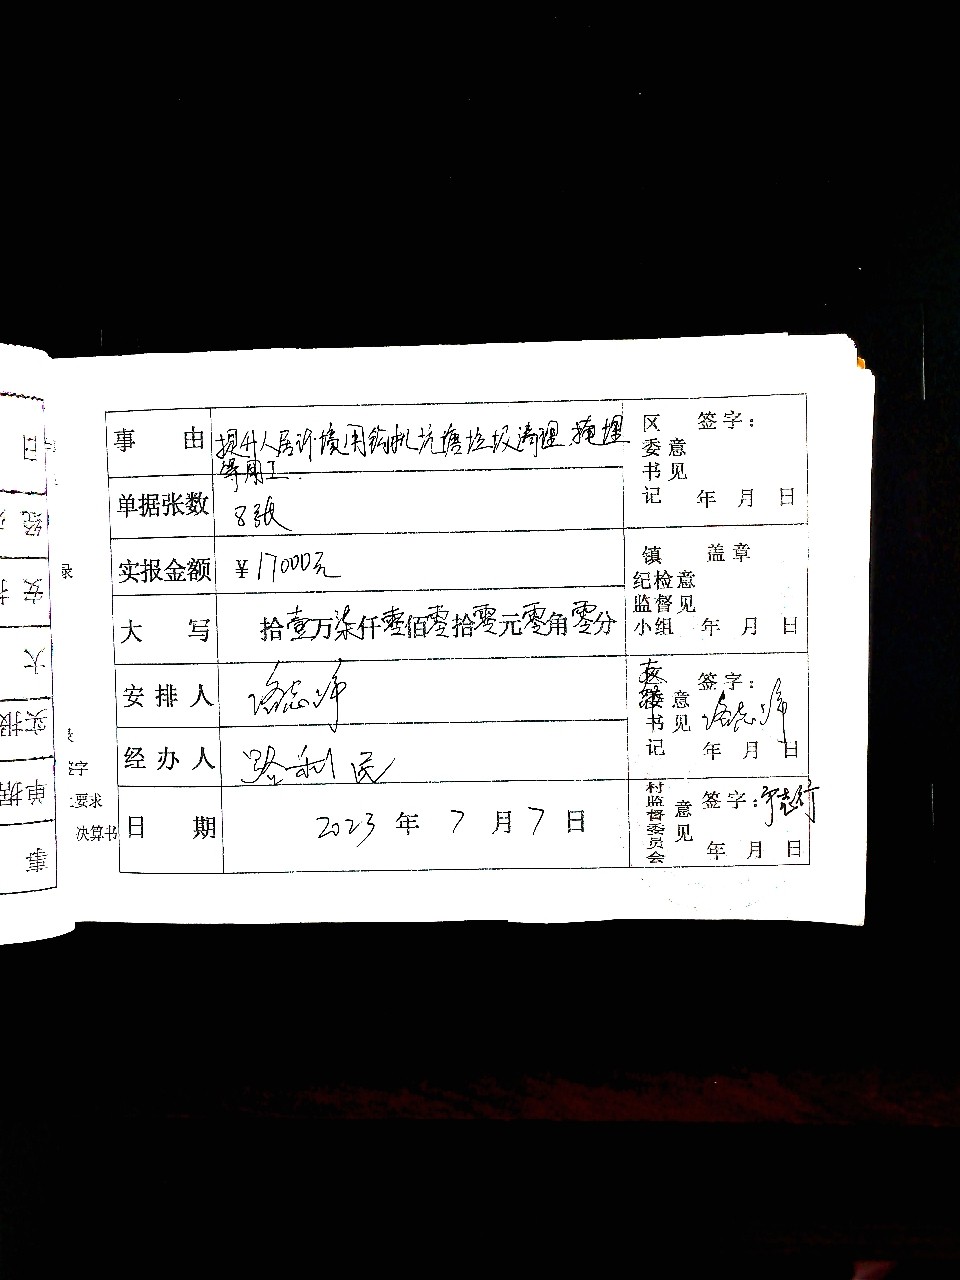 事 由
提升人居环境用钩机坑塘垃圾清理、掩埋
等用工
单据张数
8张
实报金额
￥17000元
大 写
拾壹万柒仟零佰零拾零元零角零分
安排人
经办人
路利民
日 期
2023 年 7 月 7 日
区委书记
意见
签字：
年 月 日
镇纪检监督小组
意见
盖章
年 月 日
书记
意见
签字：
年 月 日
村监督委员会
意见
签字：
年 月 日
录
签字
要求
决算书
日
经
安
大
实报
单据
事